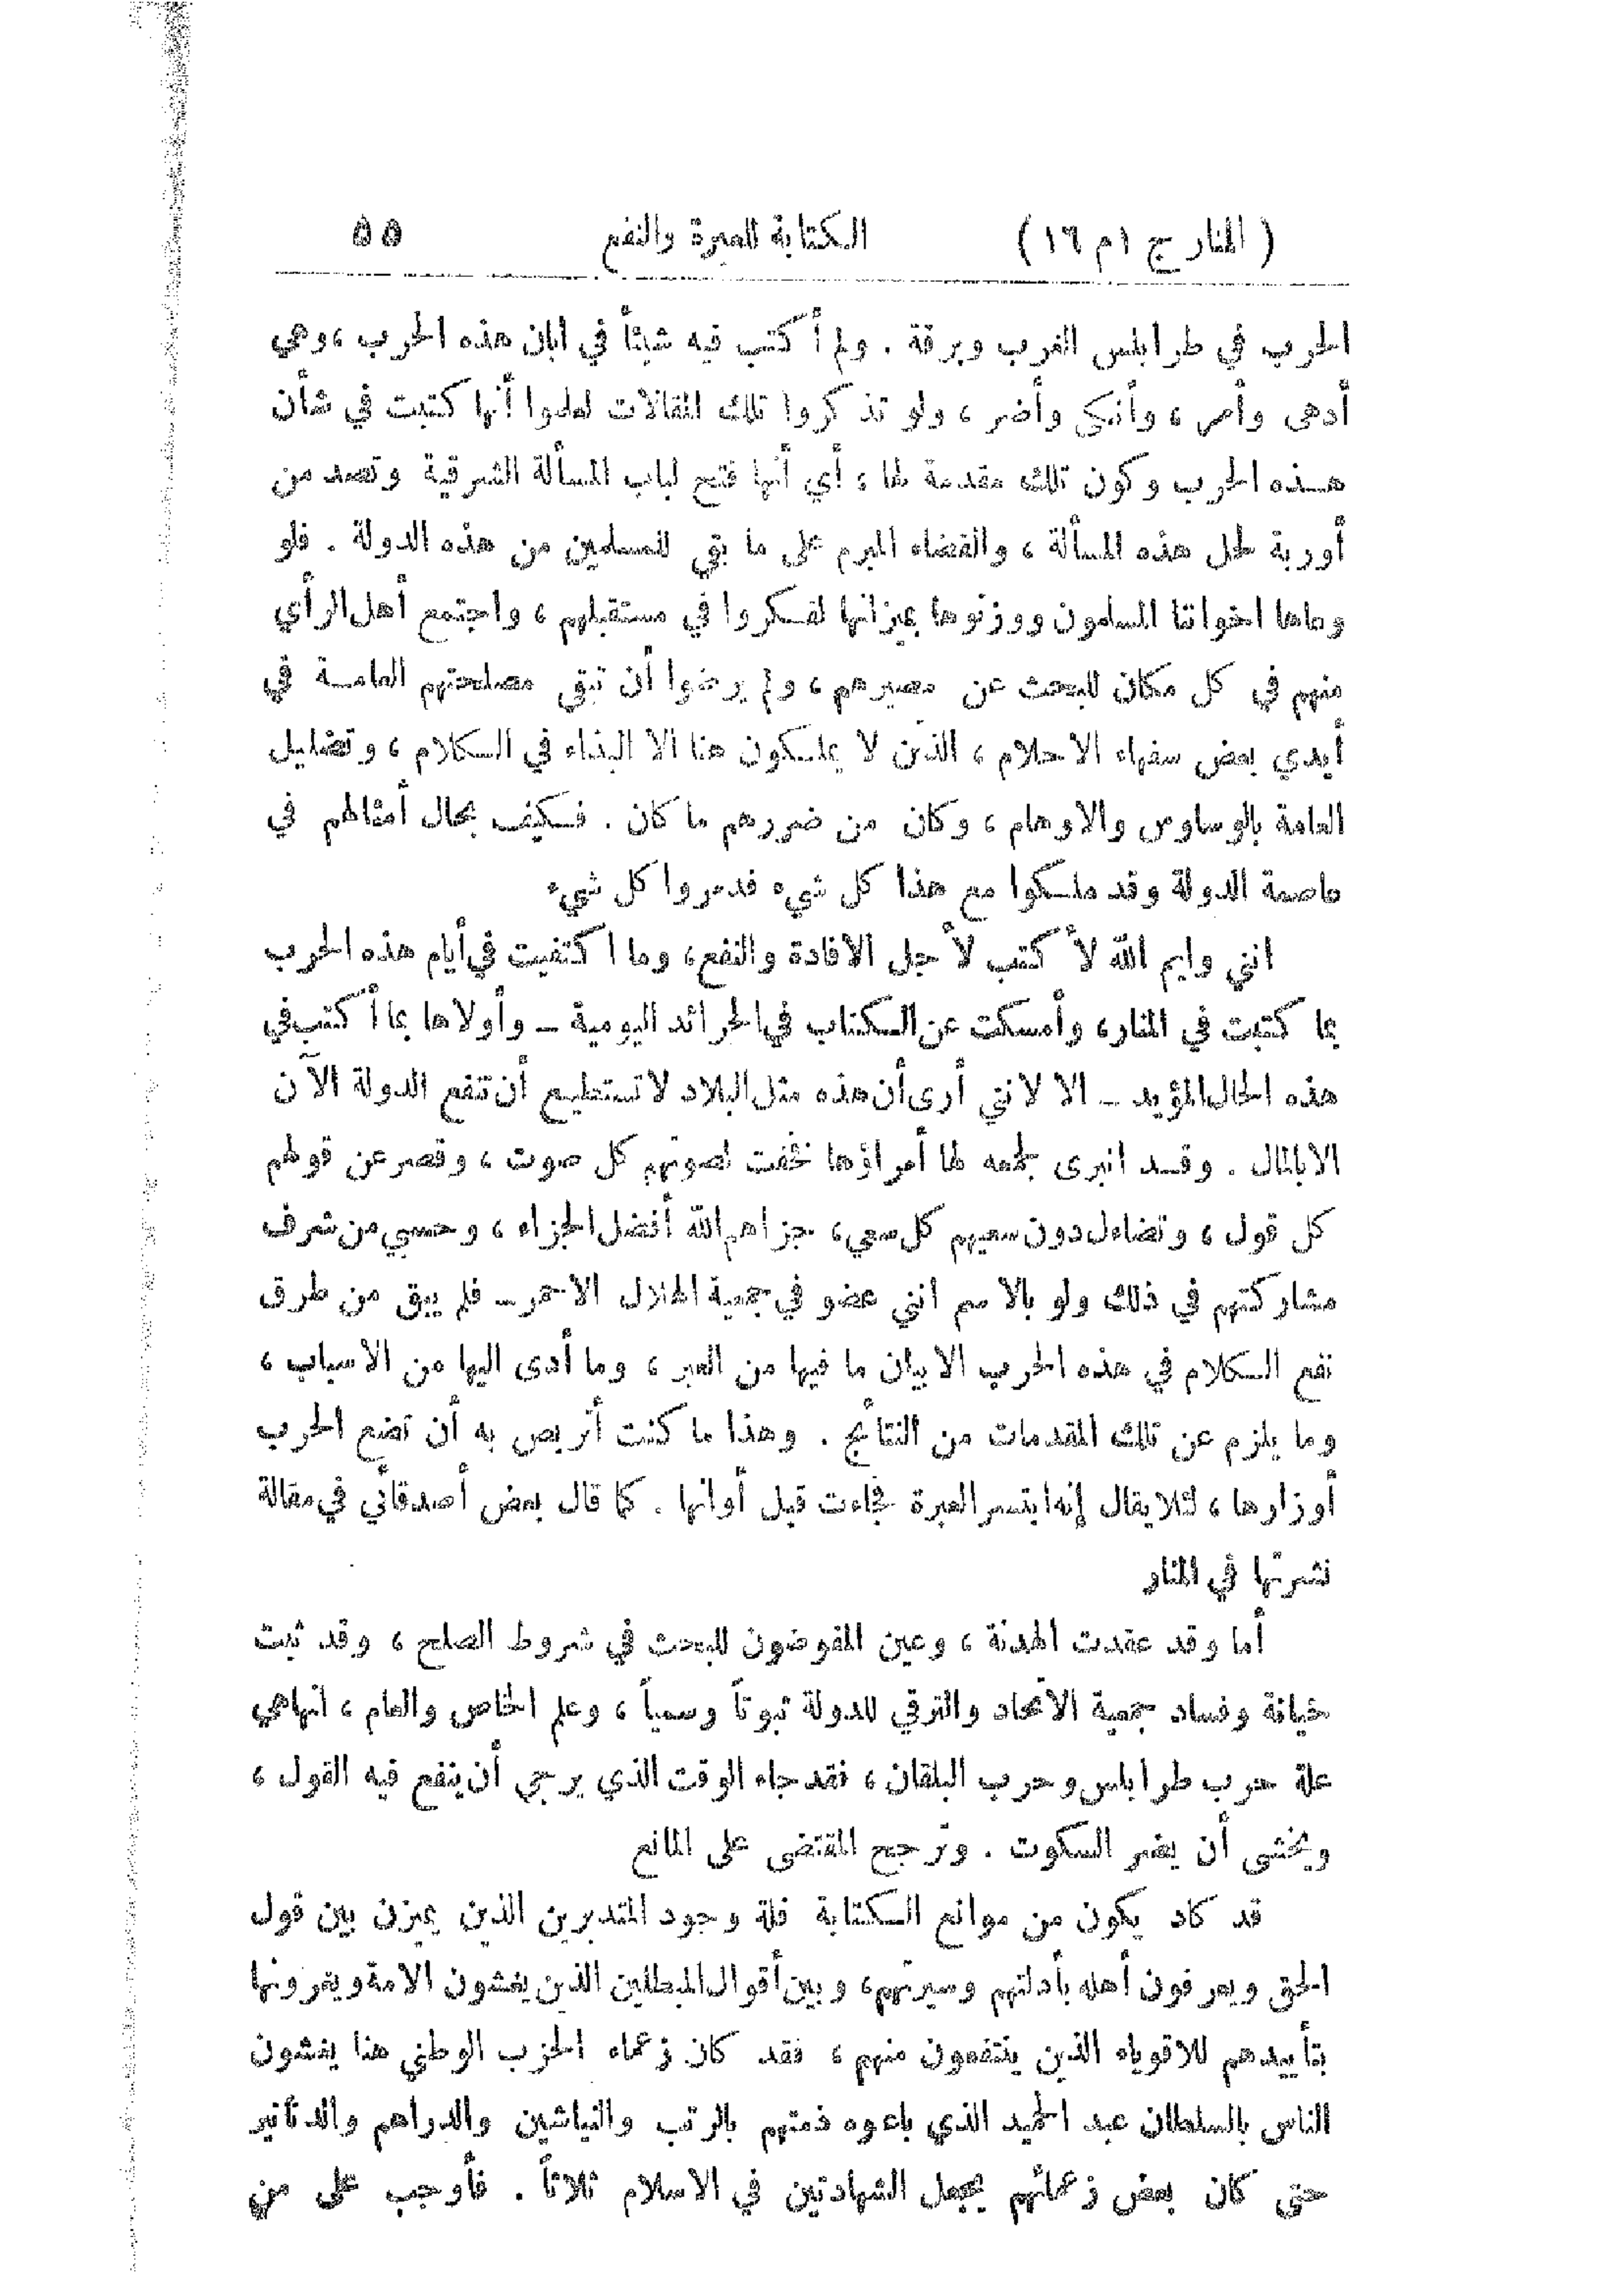 ( المنار ج ١ م ١٦ ) الكتابة للعبرة والنفع ٥٥
الحرب في طرابلس الغرب وبرقة . ولم أكتب فيه شيئاً في ابان هذه الحرب ، وهي
أدهى وأمر ، وأنكى وأضر ، ولو تذكروا تلك المقالات لعلموا أنها كتبت في شأن
هذه الحرب وكون تلك مقدمة لها ، أي أنها فتح لباب المسألة الشرقية وتصد من
أوربة لحل هذه المسألة ، والقضاء المبرم على ما بقي للمسلمين من هذه الدولة . فلو
وعاها اخواننا المسلمون ووزنوها بميزانها لفكروا في مستقبلهم ، واجتمع أهل الرأي
منهم في كل مكان للبحث عن مصيرهم ، ولم يرضوا أن تبقى مصلحتهم العامة في
أيدي بعض سفهاء الاحلام ، الذين لا يملكون هنا الا البذاء في الكلام ، وتضليل
العامة بالوساوس والاوهام ، وكان من ضررهم ما كان . فكيف بحال أمثالهم في
عاصمة الدولة وقد ملكوا مع هذا كل شيء فدمروا كل شيء
انني وايم الله لأكتب لأجل الافادة والنفع، وما اكتفيت في أيام هذه الحرب
بما كتبت في المنار، وأمسكت عن الكتاب في الجرائد اليومية ــ وأولاها بما أكتب في
هذه الحال المؤيد ــ الا لانني أرى أن هذه مثل البلاد لا تستطيع أن تنفع الدولة الآن
الا بالمال . وقد انبرى لجمعه لها أمراؤها نخفت لصوتهم كل صوت ، وقصر عن قولهم
كل قول ، وتضاءل دون سعيهم كل سعي ، جزاهم الله أفضل الجزاء ، وحسبي من شرف
مشاركتهم في ذلك ولو بالاسم انني عضو في جمعية الهلال الاحمر ــ فلم يبق من طرق
نفع الكلام في هذه الحرب الا بيان ما فيها من العبر ، وما أدى اليها من الاسباب ،
وما يلزم عن تلك المقدمات من النتائج . وهذا ما كنت أتربص به أن تضع الحرب
أوزارها ، لئلا يقال إنه ابتسر العبرة فجاءت قبل أوانها . كما قال بعض أصدقائي في مقالة
نشرتها في المنار
أما وقد عقدت الهدنة ، وعين المفوضون للبحث في شروط الصلح ، وقد ثبت
خيانة وفساد جمعية الاتحاد والترقي للدولة ثبوتاً رسمياً ، وعلم الخاص والعام ، انها هي
علة حرب طرابلس وحرب البلقان ، فقد جاء الوقت الذي يرجى أن ينفع فيه القول ،
ويخشى أن يضر السكوت . وترجح المقتضى على المانع
قد كاد يكون من موانع الكتابة قلة وجود المتدبرين الذين يميزن بين قول
الحق ويعرفون أهله بأدلتهم وسيرتهم، وبين أقوال المبطلين الذين يغشون الامة ويغرونها
بتأييدهم للاقوياء الذين ينتفعون منهم ، فقد كان زعماء الحزب الوطني هنا يغشون
الناس بالسلطان عبد الحميد الذي باعوه ذمتهم بالرتب والنياشين والدراهم والدنانير
حتى كان بعض زعمائهم يجعل الشهادتين في الاسلام ثلاثاً . فأوجب على من